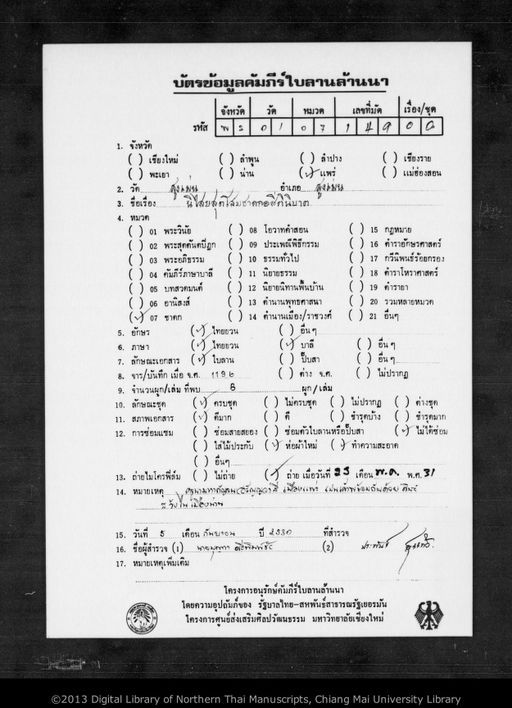 บัตรข้อมูลคัมภีร์ใบลานล้านนา
จังหวัด วัด หมวด เลขที่มัด เรื่อง/ชุด
รหัส พ ร 0 1 0 7 1 4 9 0
1. จังหวัด
( ) เชียงใหม่ ( ) ลำพูน ( ) ลำปาง ( ) เชียงราย
( ) พะเยา ( ) น่าน (✓) แพร่ ( ) แม่ฮ่องสอน
2. วัด สูงเม่น อำเภอ สูงเม่น
3. ชื่อเรื่อง
4. หมวด
( ) 01 พระวินัย ( ) 08 โอวาทคำสอน ( ) 15 กฎหมาย
( ) 02 พระสุตตันตปิฎก ( ) 09 ประเพณีพิธีกรรม ( ) 16 ตำราอักษรศาสตร์
( ) 03 พระอภิธรรม ( ) 10 ธรรมทั่วไป ( ) 17 กวีนิพนธ์ร้อยกรอง
( ) 04 คัมภีร์ภาษาบาลี ( ) 11 นิยายธรรม ( ) 18 ตำราโหราศาสตร์
( ) 05 บทสวดมนต์ ( ) 12 นิยายนิทานพื้นบ้าน ( ) 19 ตำรายา
( ) 06 อานิสงส์ ( ) 13 ตำนานพุทธศาสนา ( ) 20 รวมหลายหมวด
(✓) 07 ชาดก ( ) 14 ตำนานเมือง/ราชวงศ์ ( ) 21 อื่นๆ
5. อักษร (✓) ไทยยวน ( ) อื่นๆ
6. ภาษา (✓) ไทยยวน (✓) บาลี ( ) อื่นๆ
7. ลักษณะเอกสาร (✓) ใบลาน ( ) ปั๊บสา ( ) อื่นๆ
8. จาร/บันทึก เมื่อ จ.ศ. 1196 ( ) ต่าง จ.ศ. ( ) ไม่ปรากฏ
9. จำนวนผูก/เล่ม ที่พบ 8 ผูก/เล่ม
10. ลักษณะชุด (✓) ครบชุด ( ) ไม่ครบชุด ( ) ไม่ปรากฏ ( ) ต่างชุด
11. สภาพเอกสาร (✓) ดีมาก ( ) ดี ( ) ชำรุดบ้าง ( ) ชำรุดมาก
12. การซ่อมแซม ( ) ซ่อมสายสยอง ( ) ซ่อมตัวใบลานหรือปั๊บสา (✓) ไม่ได้ซ่อม
( ) ใส่ไม้ประกับ (✓) ห่อผ้าใหม่ (✓) ทำความสะอาด
( ) อื่นๆ
13. ถ่ายไมโครฟิล์ม ( ) ไม่ถ่าย (✓) ถ่าย เมื่อวันที่ 25 เดือน พ.ค. พ.ศ. 31
14. หมายเหตุ
15. วันที่ 5 เดือน กันยายน ปี 2530 ที่สำรวจ
16. ชื่อผู้สำรวจ (1) (2)
17. หมายเหตุเพิ่มเติม
โครงการอนุรักษ์คัมภีร์ใบลานล้านนา
โดยความอุปถัมภ์ของ รัฐบาลไทย-สหพันธ์สาธารณรัฐเยอรมัน
โครงการศูนย์ส่งเสริมศิลปวัฒนธรรม มหาวิทยาลัยเชียงใหม่
©2013 Digital Library of Northern Thai Manuscripts, Chiang Mai University Library